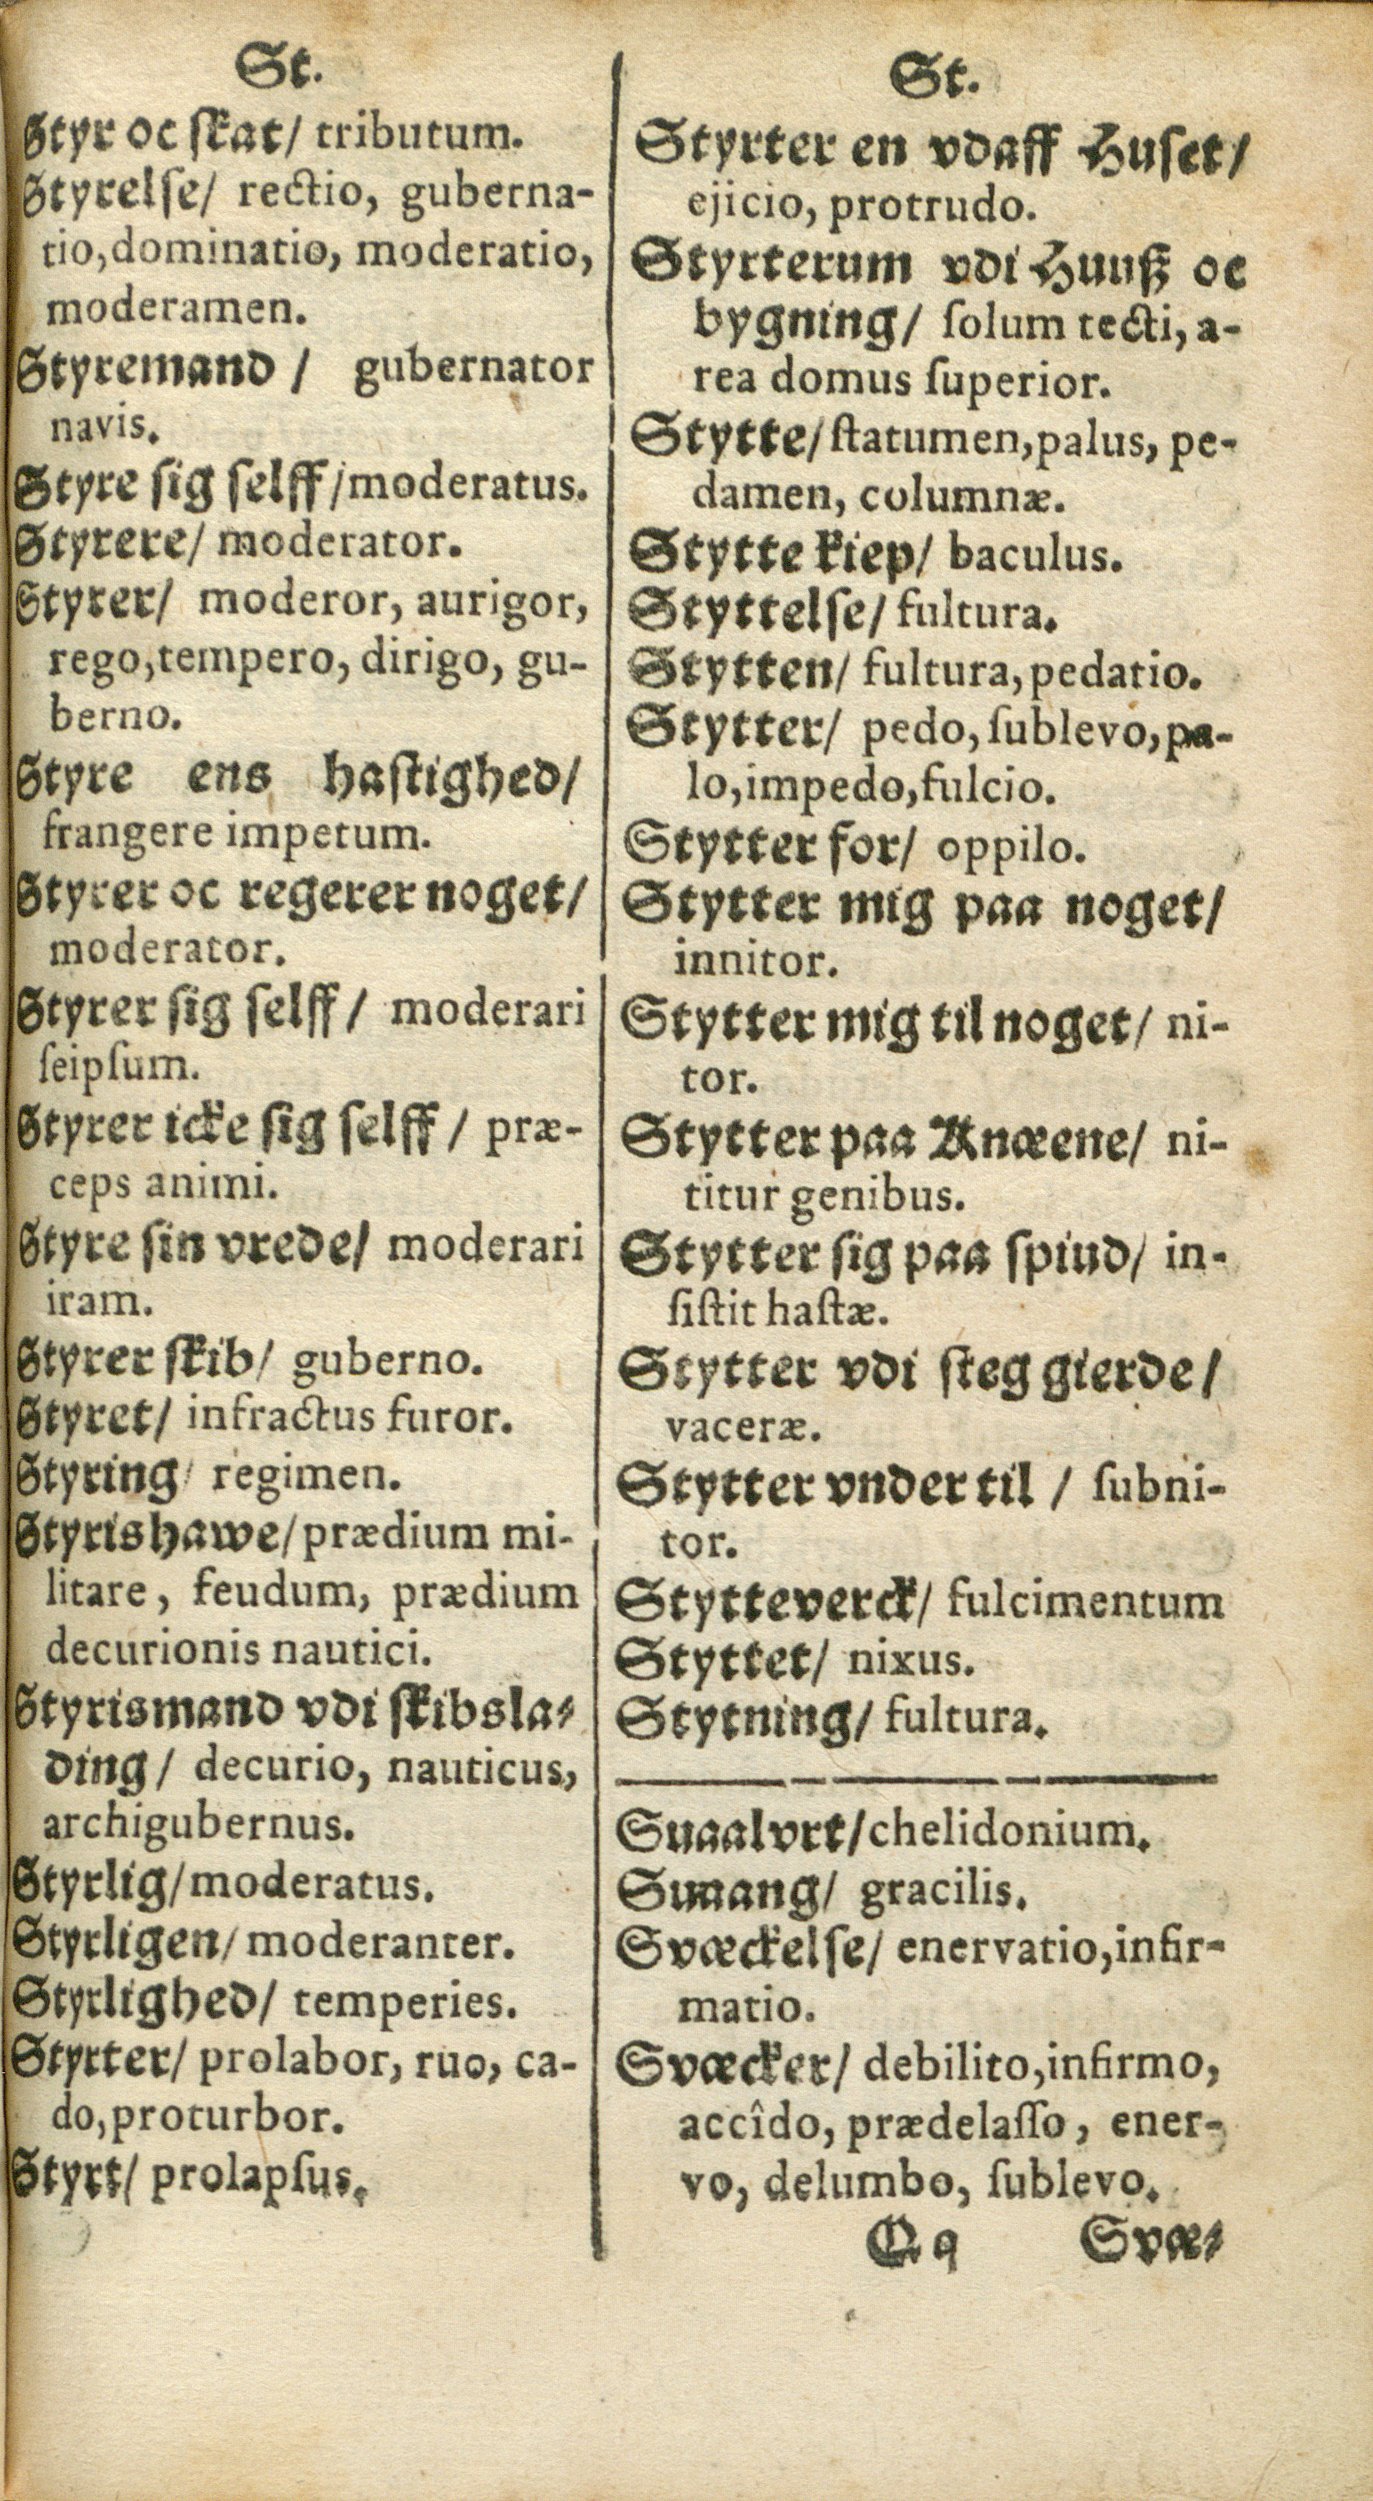 St.
Styr oc ſkat/ tributum.
Styrelſe/ rectio, guberna-
tio, dominatio, moderatio,
moderamen.
Styremand / gubernator
navis.
Styre ſig ſelff /moderatus.
Styrere/ moderator.
Styrer/ moderor, aurigor,
rego, tempero, dirigo, gu-
berno.
Styre ens haſtighed/
frangere impetum.
Styrer oc regerer noget/
moderator.
Styrer ſig ſelff / moderari
ſeipſum.
Styrer icke ſig ſelff / præ-
ceps animi.
Styre ſin vrede/ moderari
iram.
Styrer ſkib/ guberno.
Styret/ infractus furor.
Styring/ regimen.
Styrishawe/ prædium mi-
litare, feudum, prædium
decurionis nautici.
Styrismand vdi ſkibsla-
ding/ decurio, nauticus,
archigubernus.
Styrlig/moderatus.
Styrligen/ moderanter.
Styrlighed/ temperies.
Styrter/ prolabor, ruo, ca-
do, proturbor.
Styrt/ prolapſus.
St.
Styrter en vdaff Huſet/
ejicio, protrudo.
Styrterum vdi Huuß oc
bygning/ ſolum tecti, a-
rea domus ſuperior.
Stytte/ ſtatumen, palus, pe-
damen, columnæ.
Stytte kiep/ baculus.
Styttelſe/ fultura.
Stytten/ fultura, pedatio.
Stytter/ pedo, ſublevo, pa-
lo, impedo, fulcio.
Stytter for/ oppilo.
Stytter mig paa noget/
innitor.
Stytter mig til noget/ ni-
tor.
Stytter paa Knæene/ ni-
titur genibus.
Stytter ſig paa ſpiud/ in-
ſiſtit haſtæ.
Stytter vdi ſteg gierde/
vaceræ.
Stytter vnder til / ſubni-
tor.
Stytteverck/ fulcimentum
Styttet/ nixus.
Stytning/ fultura.
Suaalvrt/chelidonium.
Suaang/ gracilis.
Svæckelſe/ enervatio, infir-
matio.
Svæcker/ debilito, infirmo,
accîdo, prædelaſſo, ener-
vo, delumbo, ſublevo.
Qq Svæ-